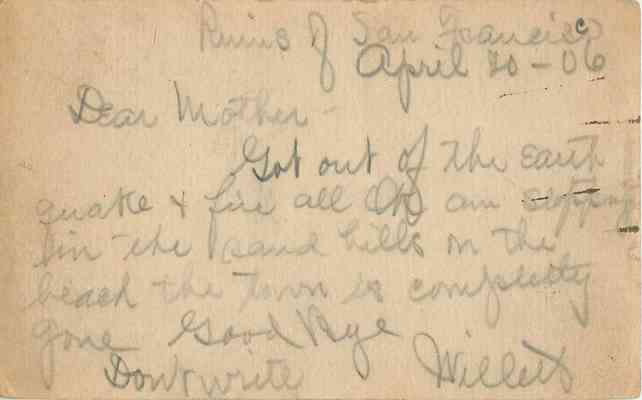 Ruins of San Francisco
April 20 - 06
Dear Mother -
Got out of the earth
quake & fire all OK am slepping
in the sand hills on the
beach the town is completly
gone Good Bye
Dont write Willett